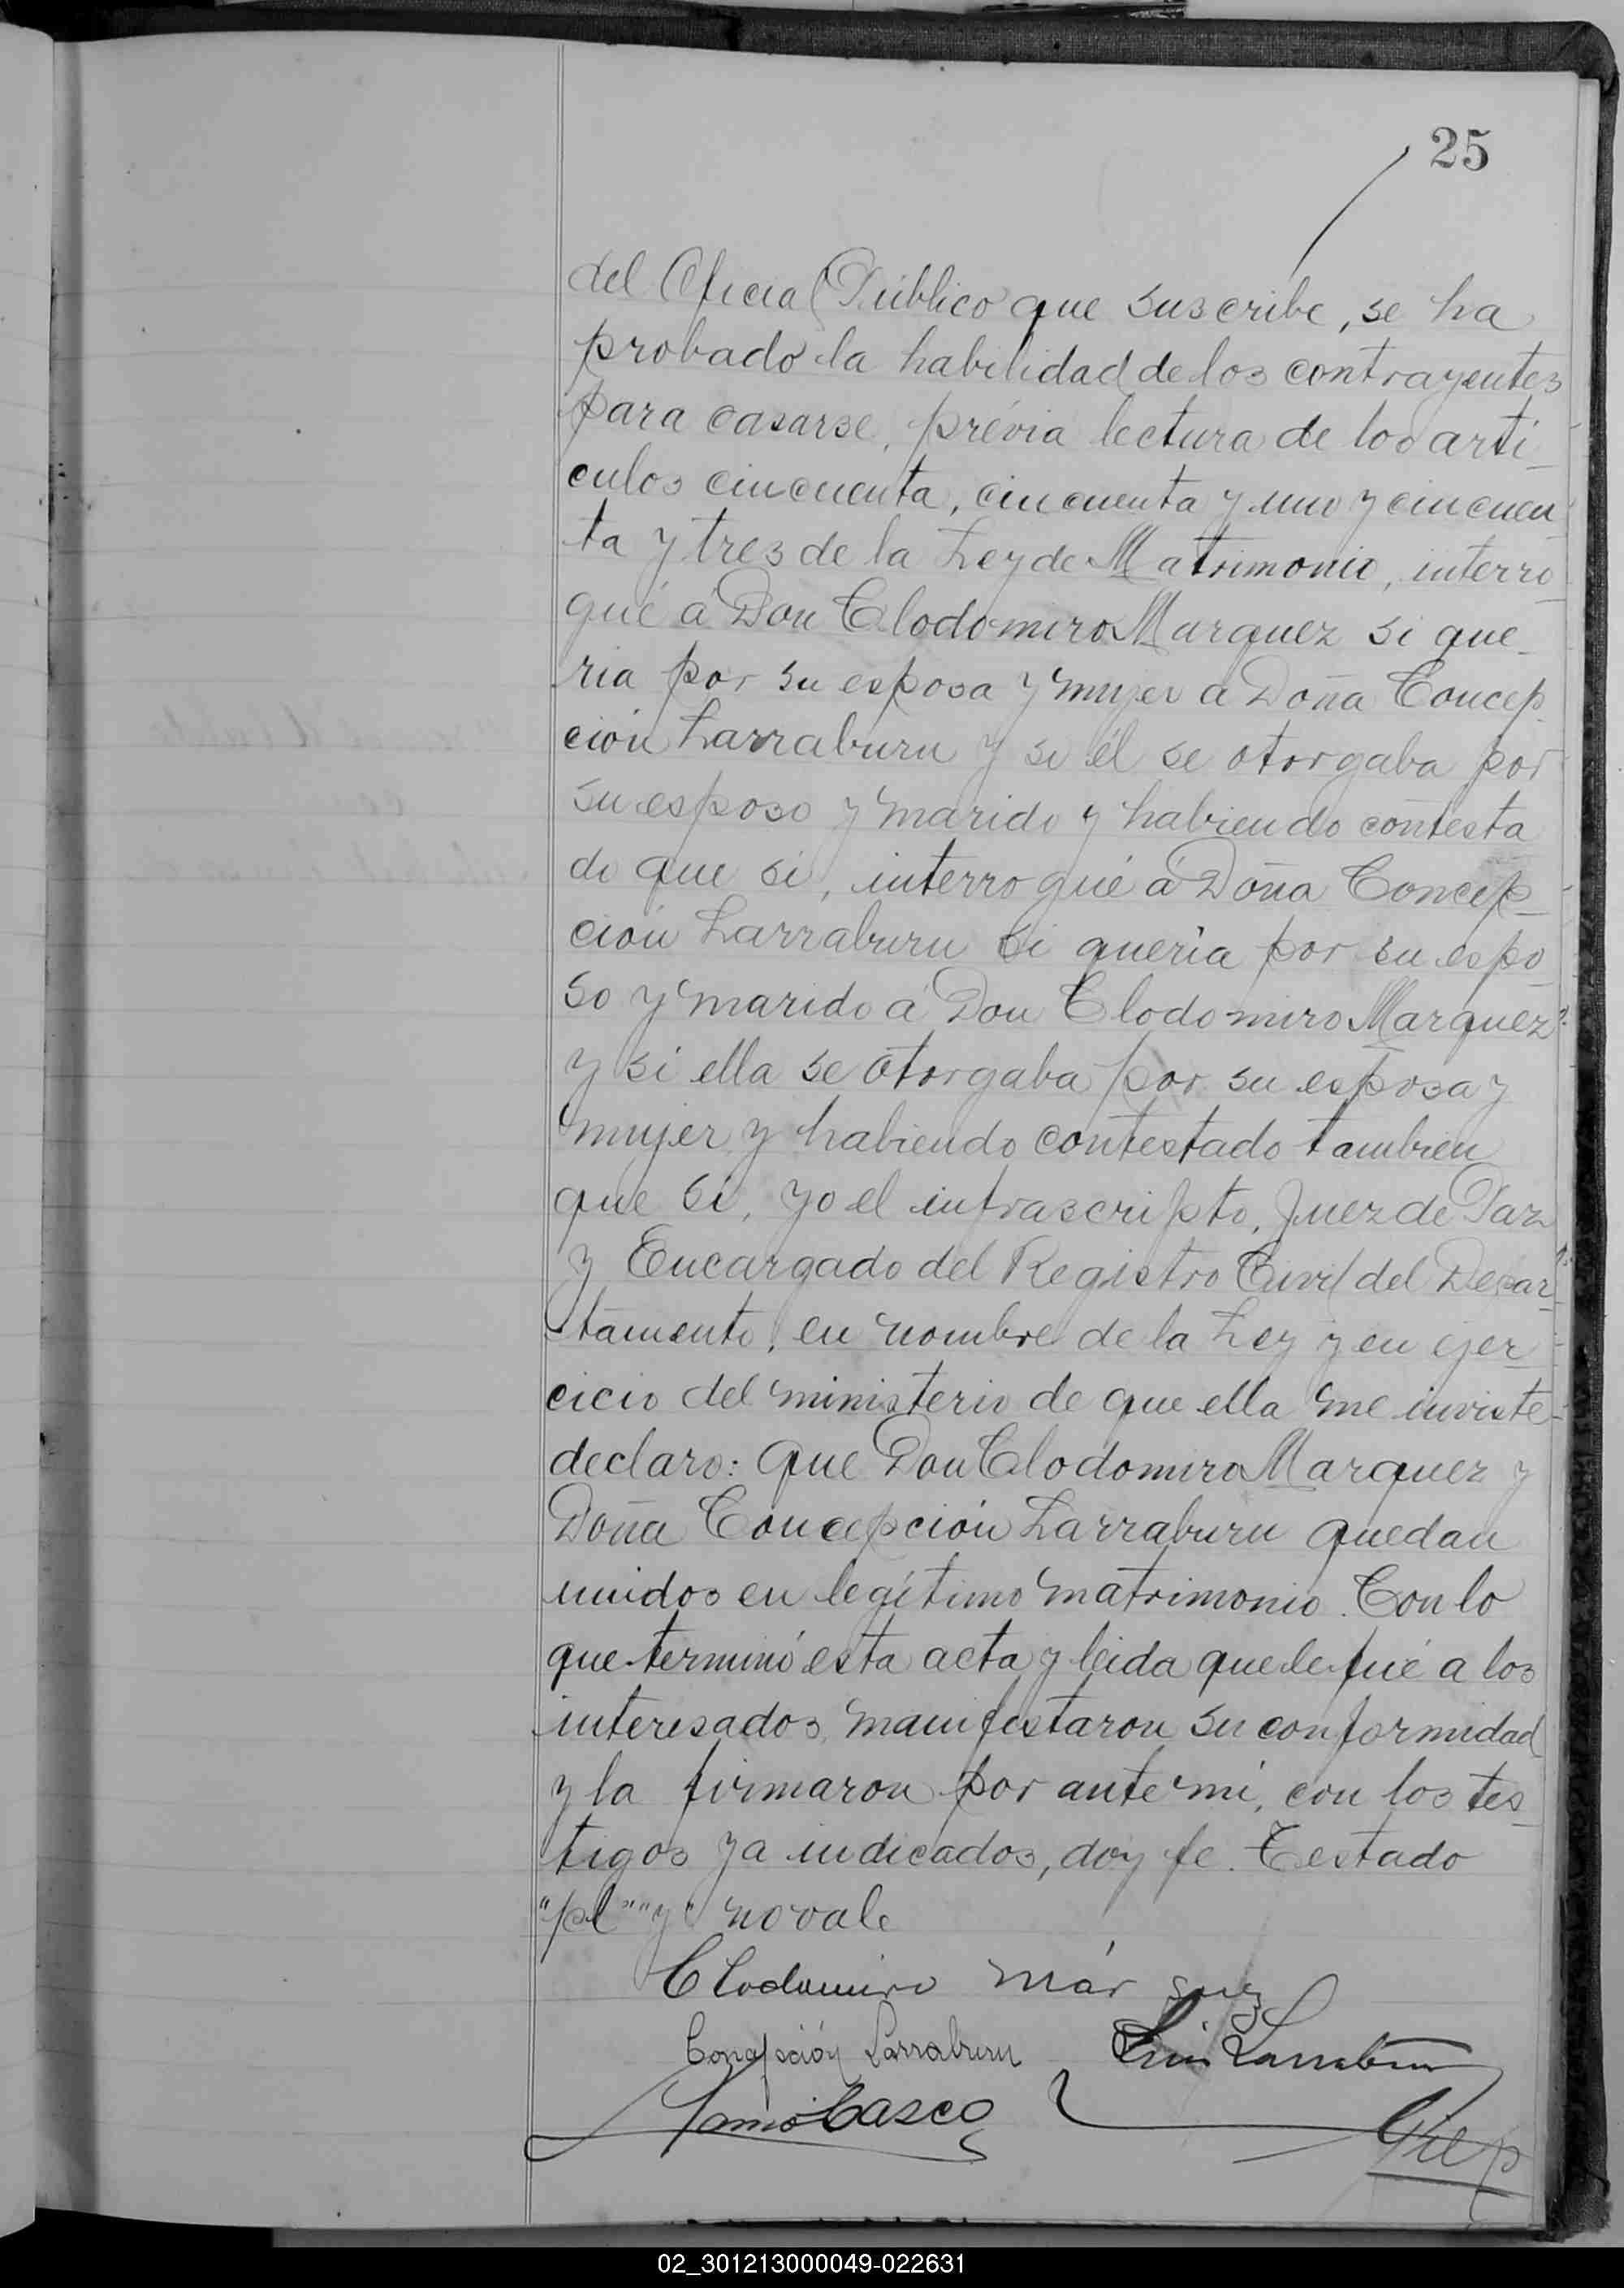 25
del Oficial Público que suscribe, se ha
probado la habilidad de los contrayentes
para casarse, prévia lectura de los arti-
culos cincuenta, cincuenta y uno y cincuen-
ta y tres de la Ley de Matrimonio, interro-
gué á Don Clodomiro Marquez si que-
ria por su esposa y mujer a Doña Concep-
ción Larraburu y si él se otorgaba por
su esposo y marido y habiendo contesta
do que si, interrogué á Doña Concep-
ción Larraburu si queria por su espo-
so y marido á Don Clodomiro Marquez
y si ella se otorgaba por su esposa y
mujer y habiendo contestado tambien
que si, yo el infrascripto, Juez de Paz
y Encargado del Registro Civil del Depar-
tamento, en nombre de la Ley y en ejer-
cicio del ministerio de que ella me inviste-
declaro: que Don Clodomiro Marquez y
Doña Concepción Larraburu quedan
unidos en legítimo matrimonio. Con lo
que terminó esta acta y leida que le fué a los
interesados, manifestaron su conformidad
y la firmaron por ante mi, con los tes-
tigos ya indicados, doy fe. Testado
"pl" "y" no vale
Clodomiro Márquez
Concepción Larraburu Luis Larraburu
Casco
02_301213000049-022631